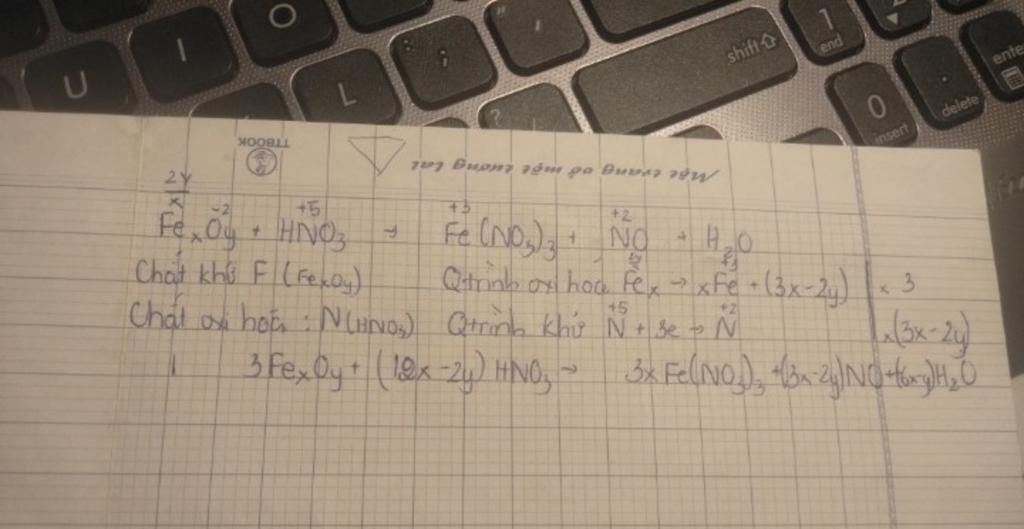 U
I
O
L
:
;
"
'
?
shift⇧
1
end
0
insert
.
delete
enter
TTBOOK
Một trang vở một tương lai
2y/x -2 +5 +3 +2
FexOy + HNO3 → Fe(NO3)3 + NO + H2O
Chất khử F (FexOy) Qtrình oxi hoá Fex → xFe + (3x-2y) × 3
Chất oxi hoá : N(HNO3) Qtrình khử N+5 + 3e → N+2 × (3x-2y)
1 3FexOy + (12x-2y) HNO3 → 3xFe(NO3)3 + (3x-2y)NO + (6x-y)H2O